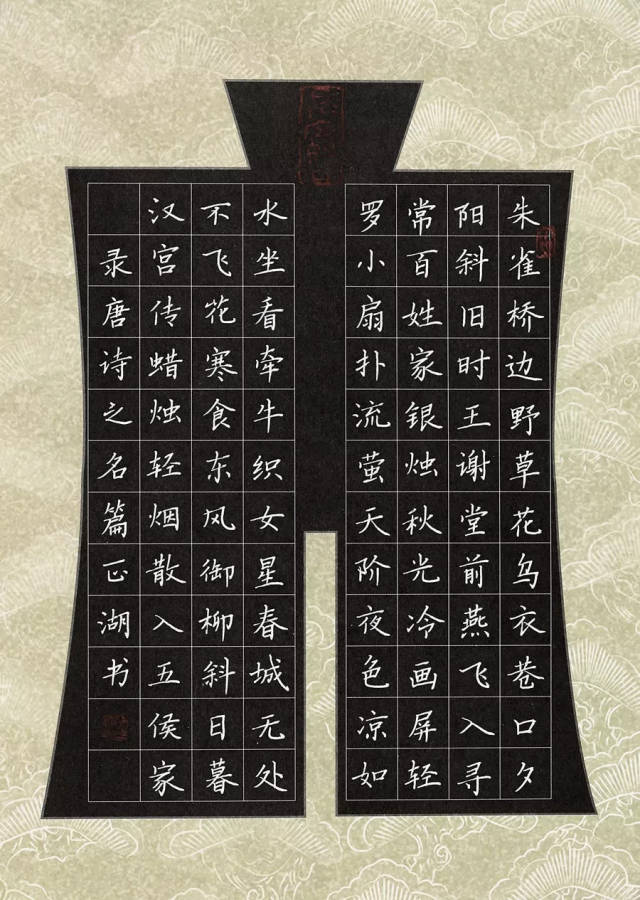 朱雀桥边野草花乌衣巷口夕
阳斜旧时王谢堂前燕飞入寻
常百姓家银烛秋光冷画屏轻
罗小扇扑流萤天阶夜色凉如
水坐看牵牛织女星春城无处
不飞花寒食东风御柳斜日暮
汉宫传蜡烛轻烟散入五侯家
录唐诗之名篇正湖书